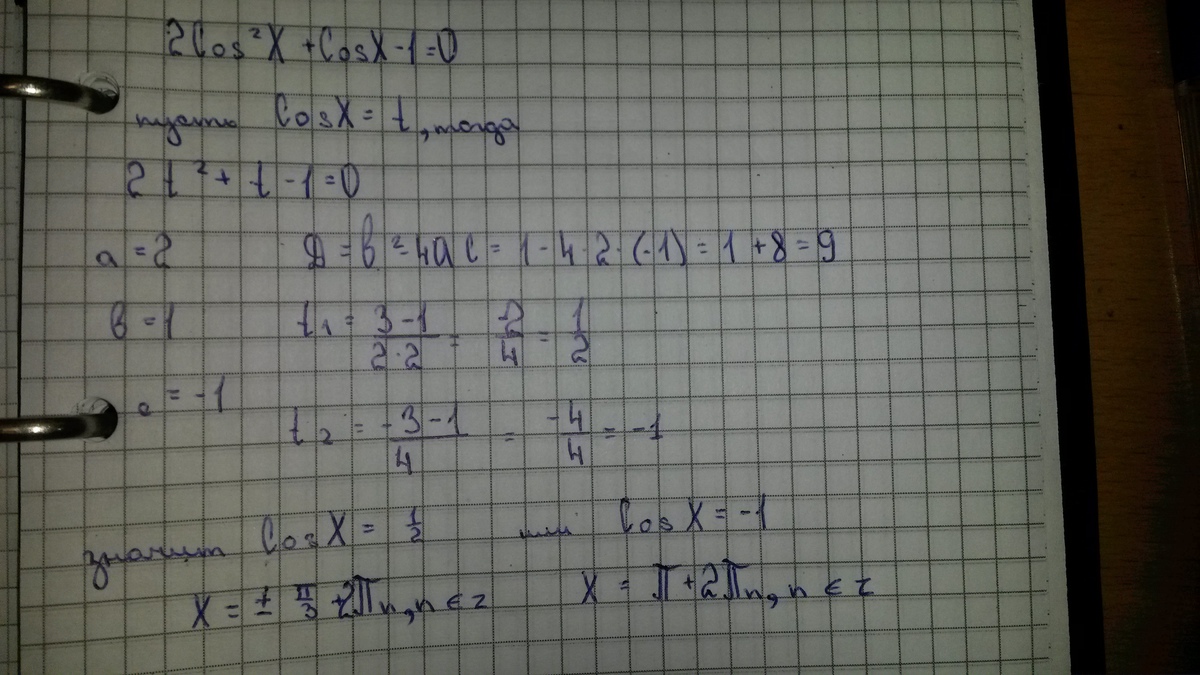 2Cos²X + CosX - 1 = 0
пусть CosX = t, тогда
2t² + t - 1 = 0
a = 2 D = в² - 4ac = 1 - 4·2·(-1) = 1 + 8 = 9
в = 1 t₁ = (3-1)/(2·2) = 2/4 = 1/2
c = -1 t₂ = (-3-1)/4 = -4/4 = -1
значит CosX = 1/2 или CosX = -1
X = ± π/3 + 2πn, n ∈ z X = π + 2πn, n ∈ z